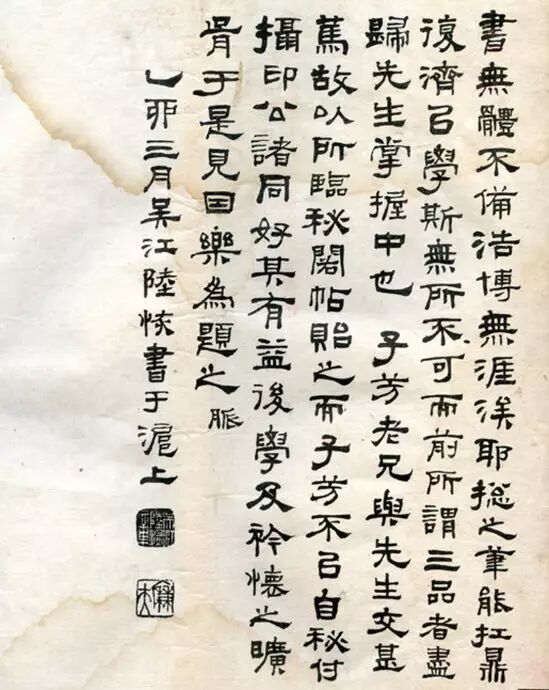 書無體不備浩博無涯涘耶揔之筆能扛鼎
復濟㠯學斯無所不可而前所謂三品者盡
歸先生掌握中也 子芳老兄與先生交甚
篤故以所臨秘閣帖貽之而子芳不㠯自秘付
攝印公諸同好其有益後學及衿懷之曠
胥于是見因樂為題之 脈
乙卯三月吴江陸恢書于滬上